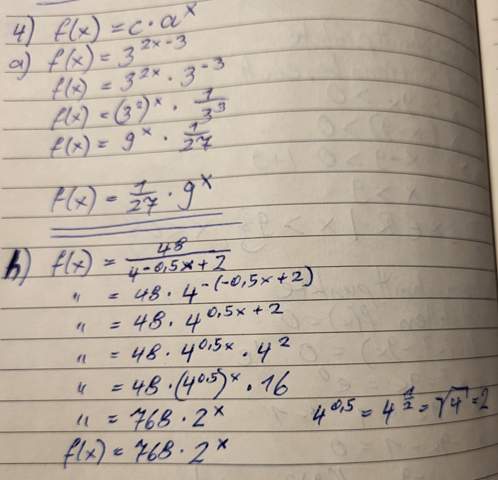 4) f(x) = c · a^x
a) f(x) = 3^(2x-3)
f(x) = 3^(2x) · 3^(-3)
f(x) = (3^2)^x · 1/3^3
f(x) = 9^x · 1/27
f(x) = 1/27 · 9^x
h) f(x) = 48/4^(-0,5x+2)
" = 48 · 4^(-(-0,5x+2))
" = 48 · 4^(0,5x+2)
" = 48 · 4^(0,5x) · 4^2
" = 48 · (4^(0,5))^x · 16
" = 768 · 2^x 4^(0,5) = 4^(1/2) = √4 = 2
f(x) = 768 · 2^x